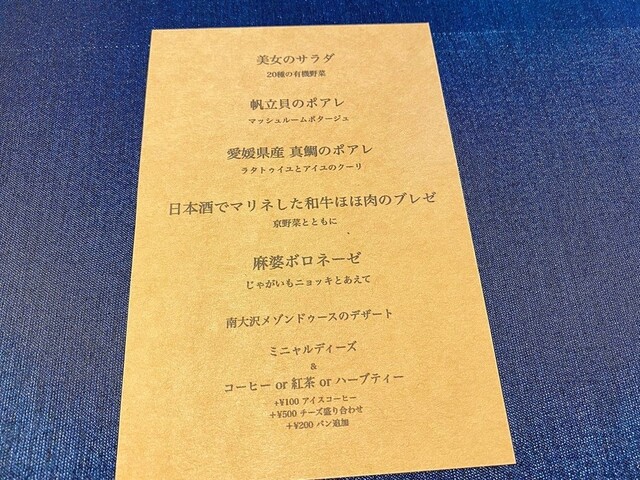 美女のサラダ
20種の有機野菜
帆立貝のポアレ
マッシュルームポタージュ
愛媛県産 真鯛のポアレ
ラタトゥイユとアイユのクーリ
日本酒でマリネした和牛ほほ肉のブレゼ
京野菜とともに
麻婆ボロネーゼ
じゃがいもニョッキとあえて
南大沢メゾンドゥースのデザート
ミニャルディーズ
&
コーヒー or 紅茶 or ハーブティー
+¥100 アイスコーヒー
+¥500 チーズ盛り合わせ
+¥200 パン追加